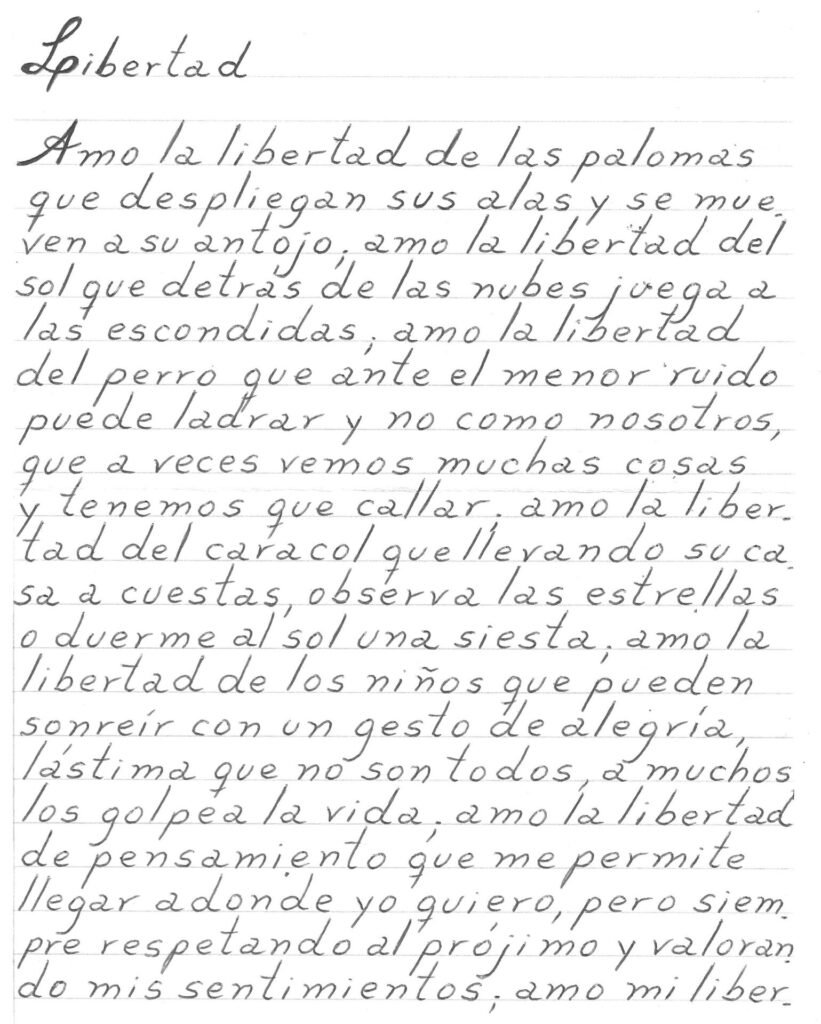 Libertad
Amo la libertad de las palomas
que despliegan sus alas y se mue-
ven a su antojo; amo la libertad del
sol que detrás de las nubes juega a
las escondidas; amo la libertad
del perro que ante el menor ruido
puede ladrar y no como nosotros,
que a veces vemos muchas cosas
y tenemos que callar; amo la liber-
tad del caracol que llevando su ca-
sa a cuestas, observa las estrellas
o duerme al sol una siesta; amo la
libertad de los niños que pueden
sonreír con un gesto de alegría,
lástima que no son todos, a muchos
los golpea la vida; amo la libertad
de pensamiento que me permite
llegar adonde yo quiero, pero siem-
pre respetando al prójimo y valoran-
do mis sentimientos; amo mi liber-